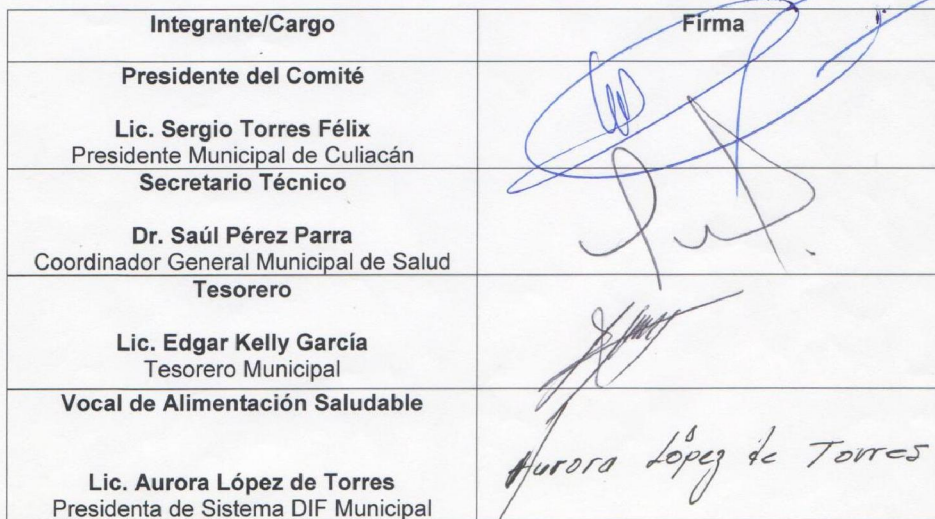 Integrante/Cargo Firma
Presidente del Comité
Lic. Sergio Torres Félix
Presidente Municipal de Culiacán
Secretario Técnico
Dr. Saúl Pérez Parra
Coordinador General Municipal de Salud
Tesorero
Lic. Edgar Kelly García
Tesorero Municipal
Vocal de Alimentación Saludable
Aurora López de Torres
Lic. Aurora López de Torres
Presidenta de Sistema DIF Municipal